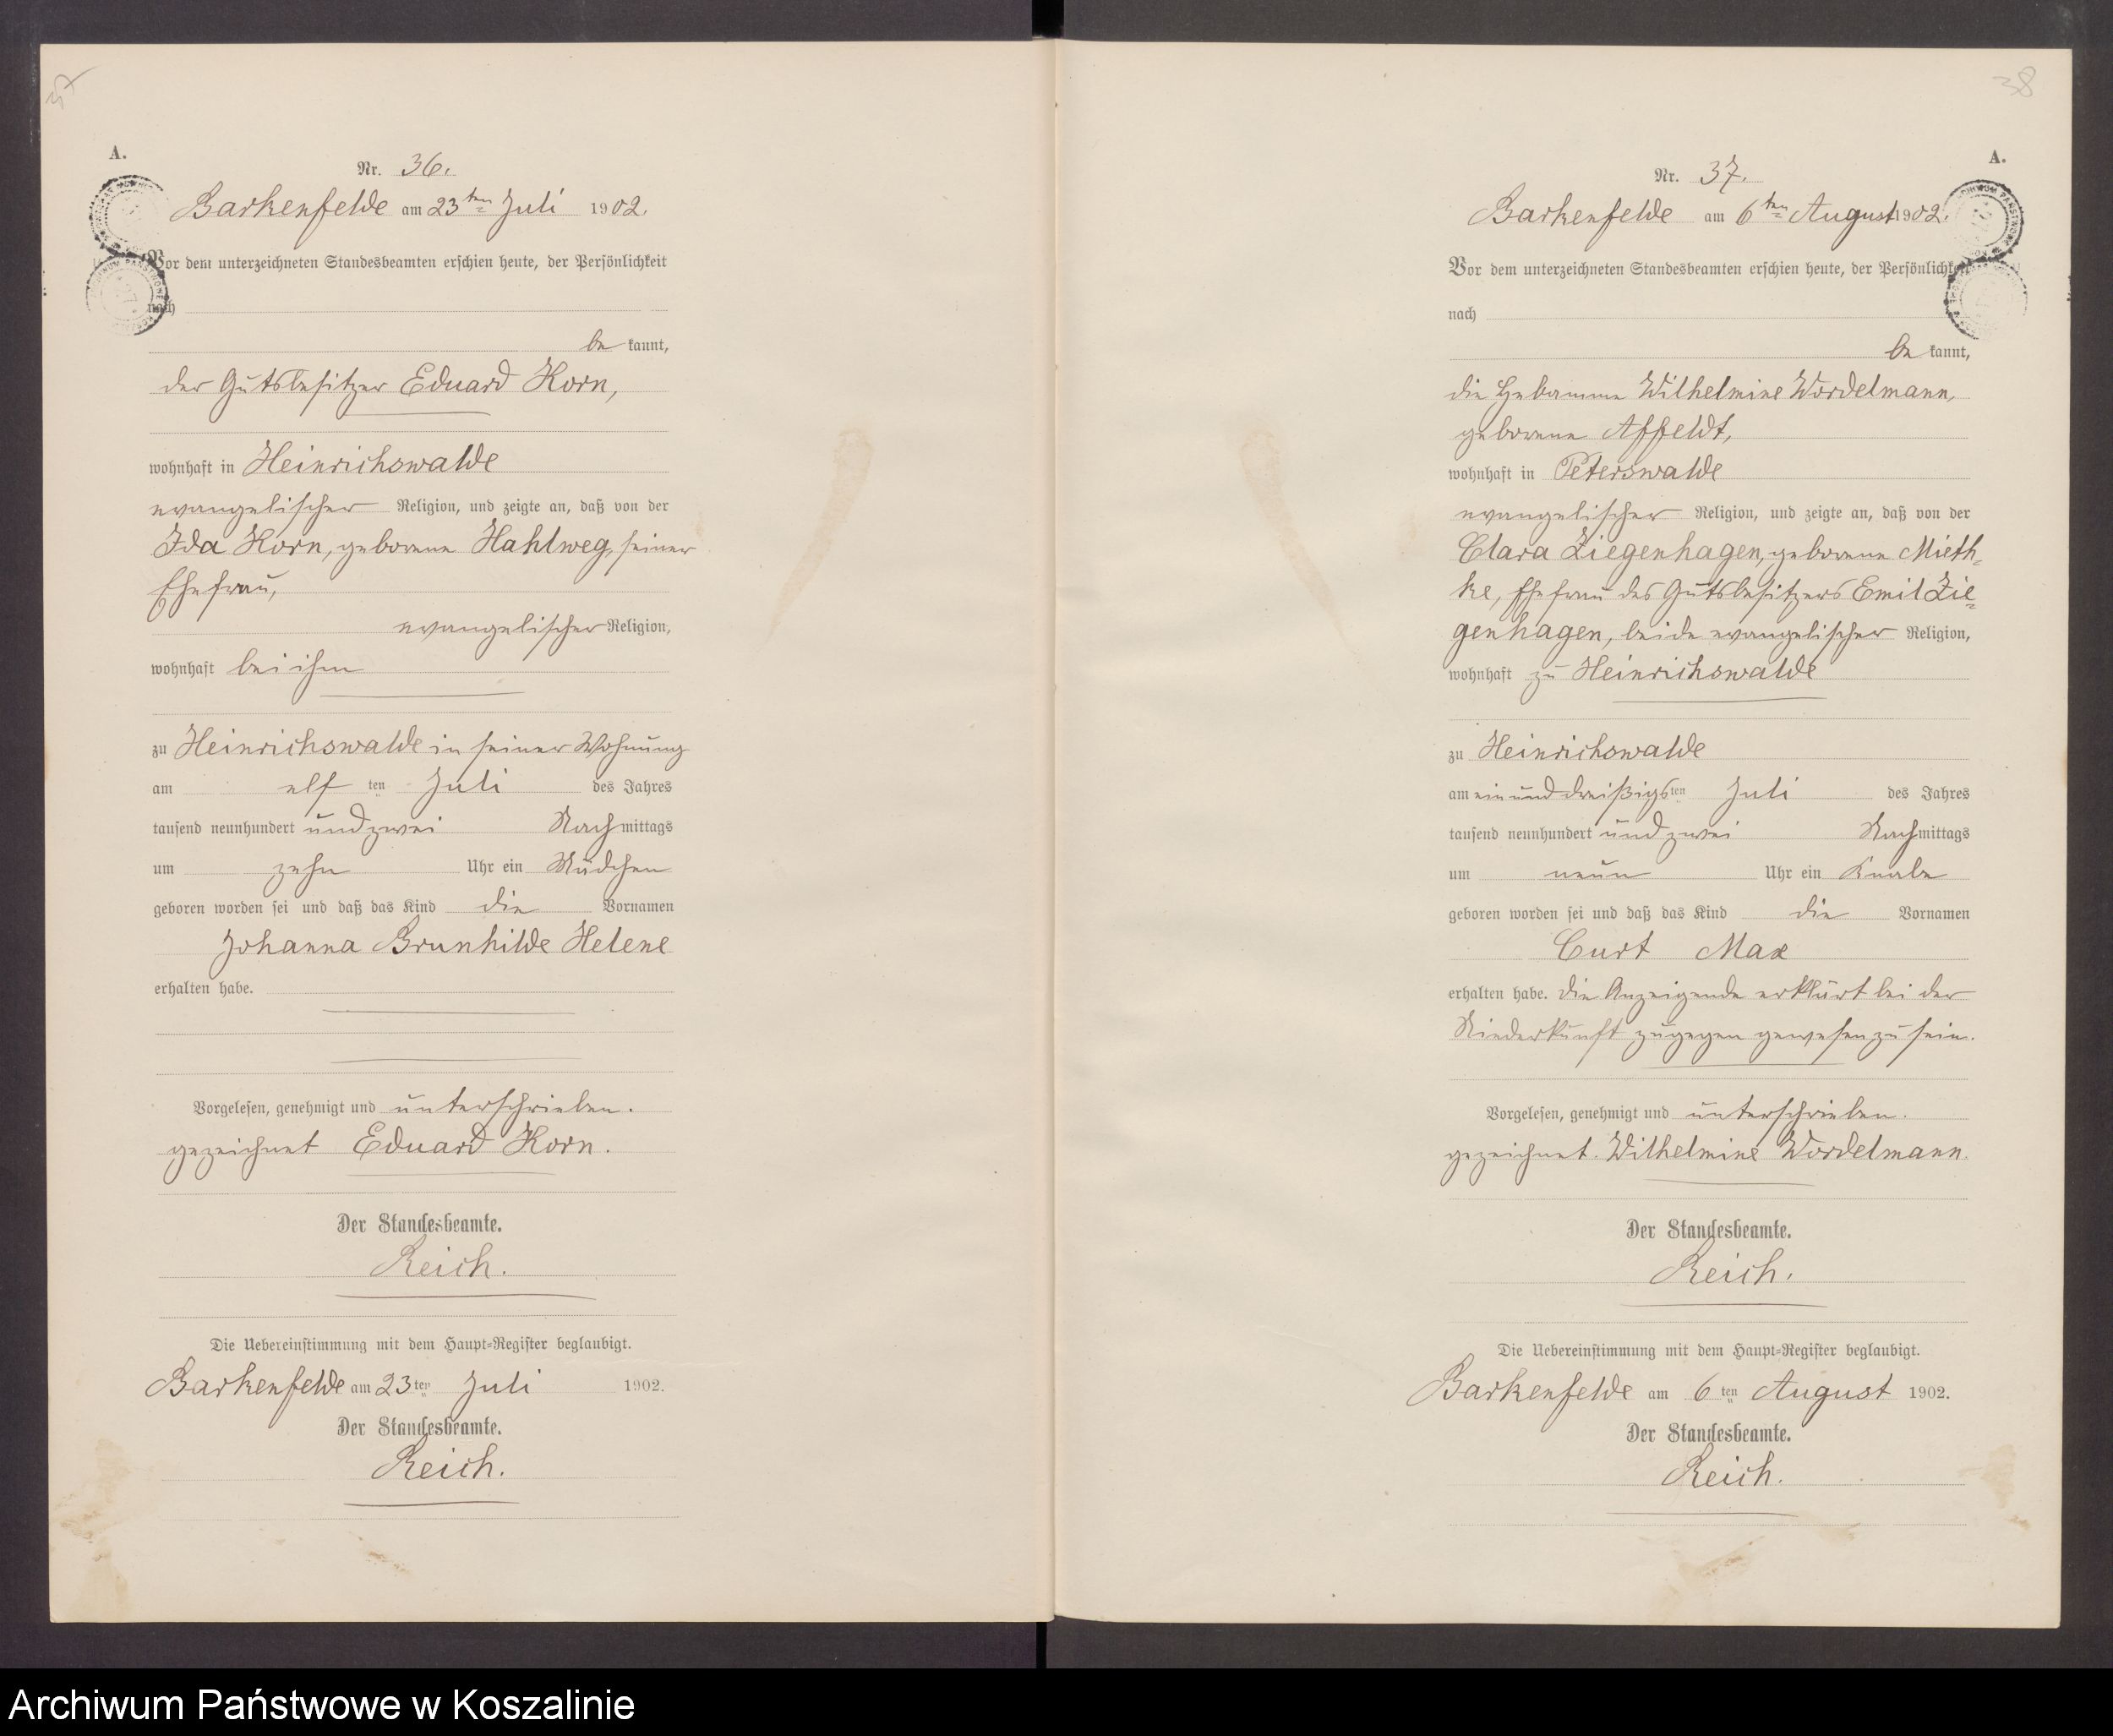 37
A.
Nr. 36.
Barkenfelde am 23ten Juli 1902.
Vor dem unterzeichneten Standesbeamten erschien heute, der Persönlichkeit
nach
be kannt,
der Gutsbesitzer Eduard Horn,
wohnhaft in Heinrichswalde
evangelischer Religion, und zeigte an, daß von der
Ida Horn, geborene Hahlweg, seiner
Ehefrau,
evangelischer Religion,
wohnhaft bei ihm
zu Heinrichswalde in seiner Wohnung
am elf ten Juli des Jahres
tausend neunhundert und zwei Nachmittags
um zehn Uhr ein Mädchen
geboren worden sei und daß das Kind die Vornamen
Johanna Brunhilde Helene
erhalten habe.
Vorgelesen, genehmigt und unterschrieben.
gezeichnet Eduard Horn.
Der Standesbeamte.
Reich.
Die Uebereinstimmung mit dem Haupt-Register beglaubigt.
Barkenfelde am 23ten Juli 1902.
Der Standesbeamte.
Reich.
38
A.
Nr. 37.
Barkenfelde am 6ten August 1902.
Vor dem unterzeichneten Standesbeamten erschien heute, der Persönlichkeit
nach
be kannt,
die Hebamme Wilhelmine Wordelmann,
geborene Affeldt,
wohnhaft in Peterswalde
evangelischer Religion, und zeigte an, daß von der
Clara Ziegenhagen, geborene Mieth-
ke, Ehefrau des Gutsbesitzers Emil Zie-
genhagen, beide evangelischer Religion,
wohnhaft zu Heinrichswalde
zu Heinrichswalde
am einunddreißigsten Juli des Jahres
tausend neunhundert und zwei Nachmittags
um neun Uhr ein Knabe
geboren worden sei und daß das Kind die Vornamen
Curt Max
erhalten habe. Die Anzeigende erklärt bei der
Niederkunft zugegen gewesen zu sein.
Vorgelesen, genehmigt und unterschrieben.
gezeichnet. Wilhelmine Wordelmann.
Der Standesbeamte.
Reich.
Die Uebereinstimmung mit dem Haupt-Register beglaubigt.
Barkenfelde am 6ten August 1902.
Der Standesbeamte.
Reich.
Archiwum Państwowe w Koszalinie